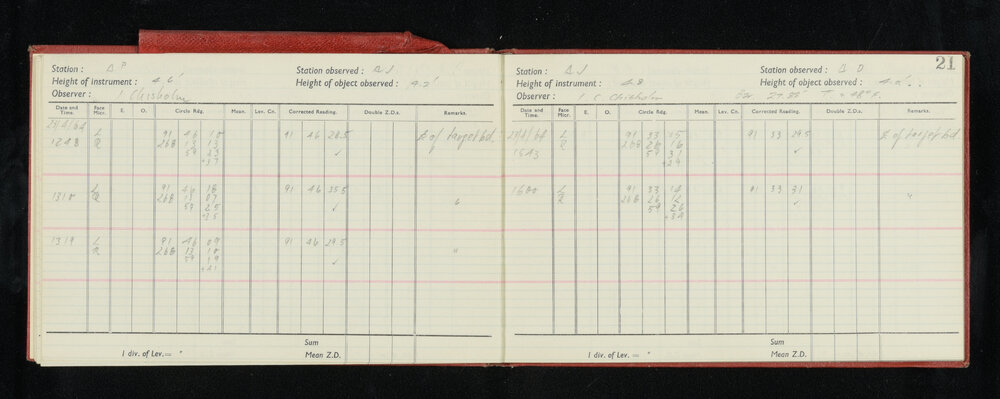 21
Station : Δ P
Station observed : Δ J
Height of instrument : 4.6'
Height of object observed : 4.2'
Observer : J Chisholm
Date and Time. Face Micr. E. O. Circle Rdg. Mean. Lev. Cn. Corrected Reading. Double Z.D.s. Remarks.
29/4/64 L 91 46 10 91 46 28.5 ¢ of target bd.
1248 R 268 13 13
59 23
+37
1310 L 91 46 18 91 46 35.5 "
R 268 13 07
59 25
+35
1319 L 91 46 09 91 46 29.5 "
R 268 13 10
59 19
+41
Sum
1 div. of Lev.= " Mean Z.D.
Station : Δ J
Station observed : Δ D
Height of instrument : 4.8
Height of object observed : 4.2'
Observer : J C. Chisholm
Date and Time. Face Micr. E. O. Circle Rdg. Mean. Lev. Cn. Corrected Reading. Double Z.D.s. Remarks.
29/4/64 L 91 33 15 91 33 29.5 ¢ of target bd
1543 R 268 26 16
59 31
+29
1600 L 91 33 14 91 33 31 "
R 268 26 12
59 26
+34
Sum
1 div. of Lev.= " Mean Z.D.